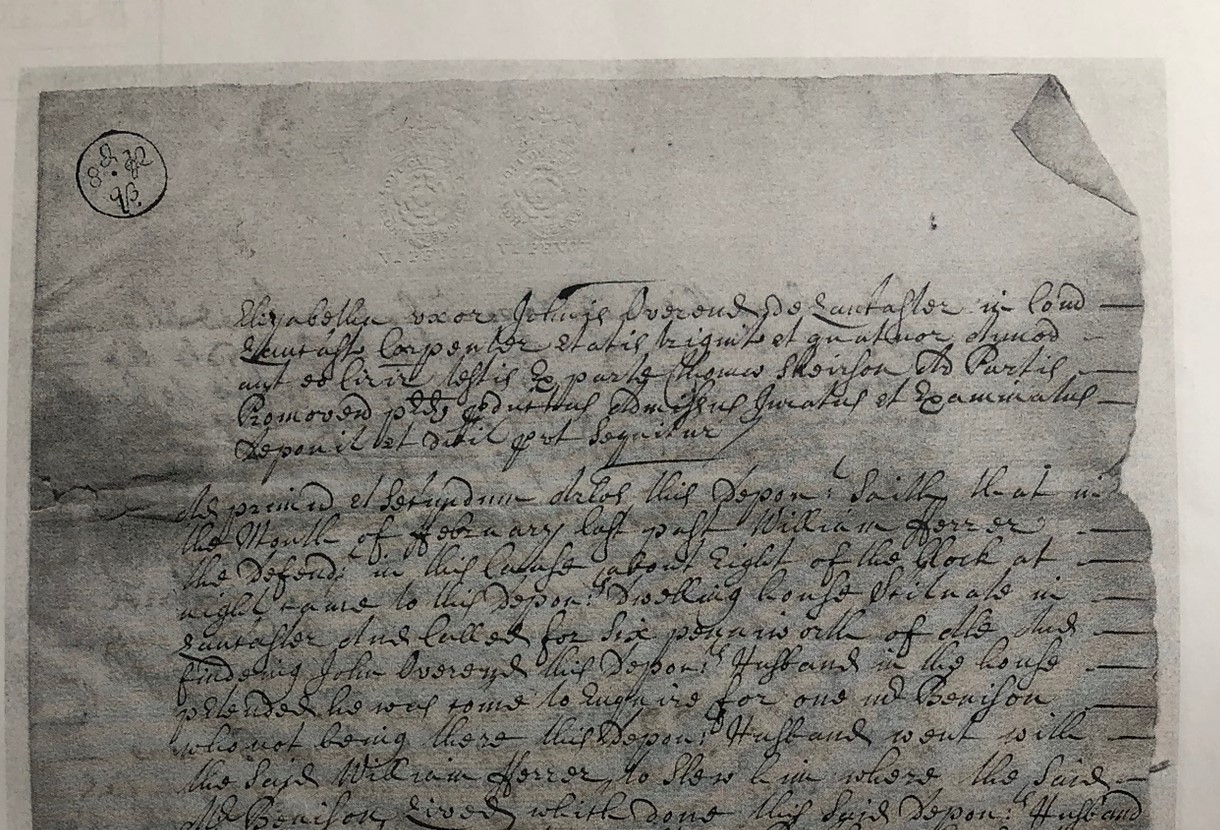 Elizabetha uxor Johnis Overend de Lancaster in Com̄
Lancastr Carpenter Etatis triginta et quatuor
aut eo circir testis Ex parte Thomæ Skeirson Ar Partis
Promoven pred producttus Admissus Juratus et Examinatus
Deponit et dicit prt Sequitur
Ad primū et Secundum Arlos this Depont Saith that in
the Month of ffebruary last past William fferrer
the Defendt in this Cause about Eight of the Clock at
night came to this Deponts Dwelling house Scituate in
Lancaster And Called for Six peniworth of Ale And
findeing John Overend this Deponts Husband in the house
ptended he was come to Enquire for one mr Benison
who not being there this Deponts Husband went with
the Said William fferrer to Shew him where the Said
Mr Benison Lived which done this Said Deponts Husband